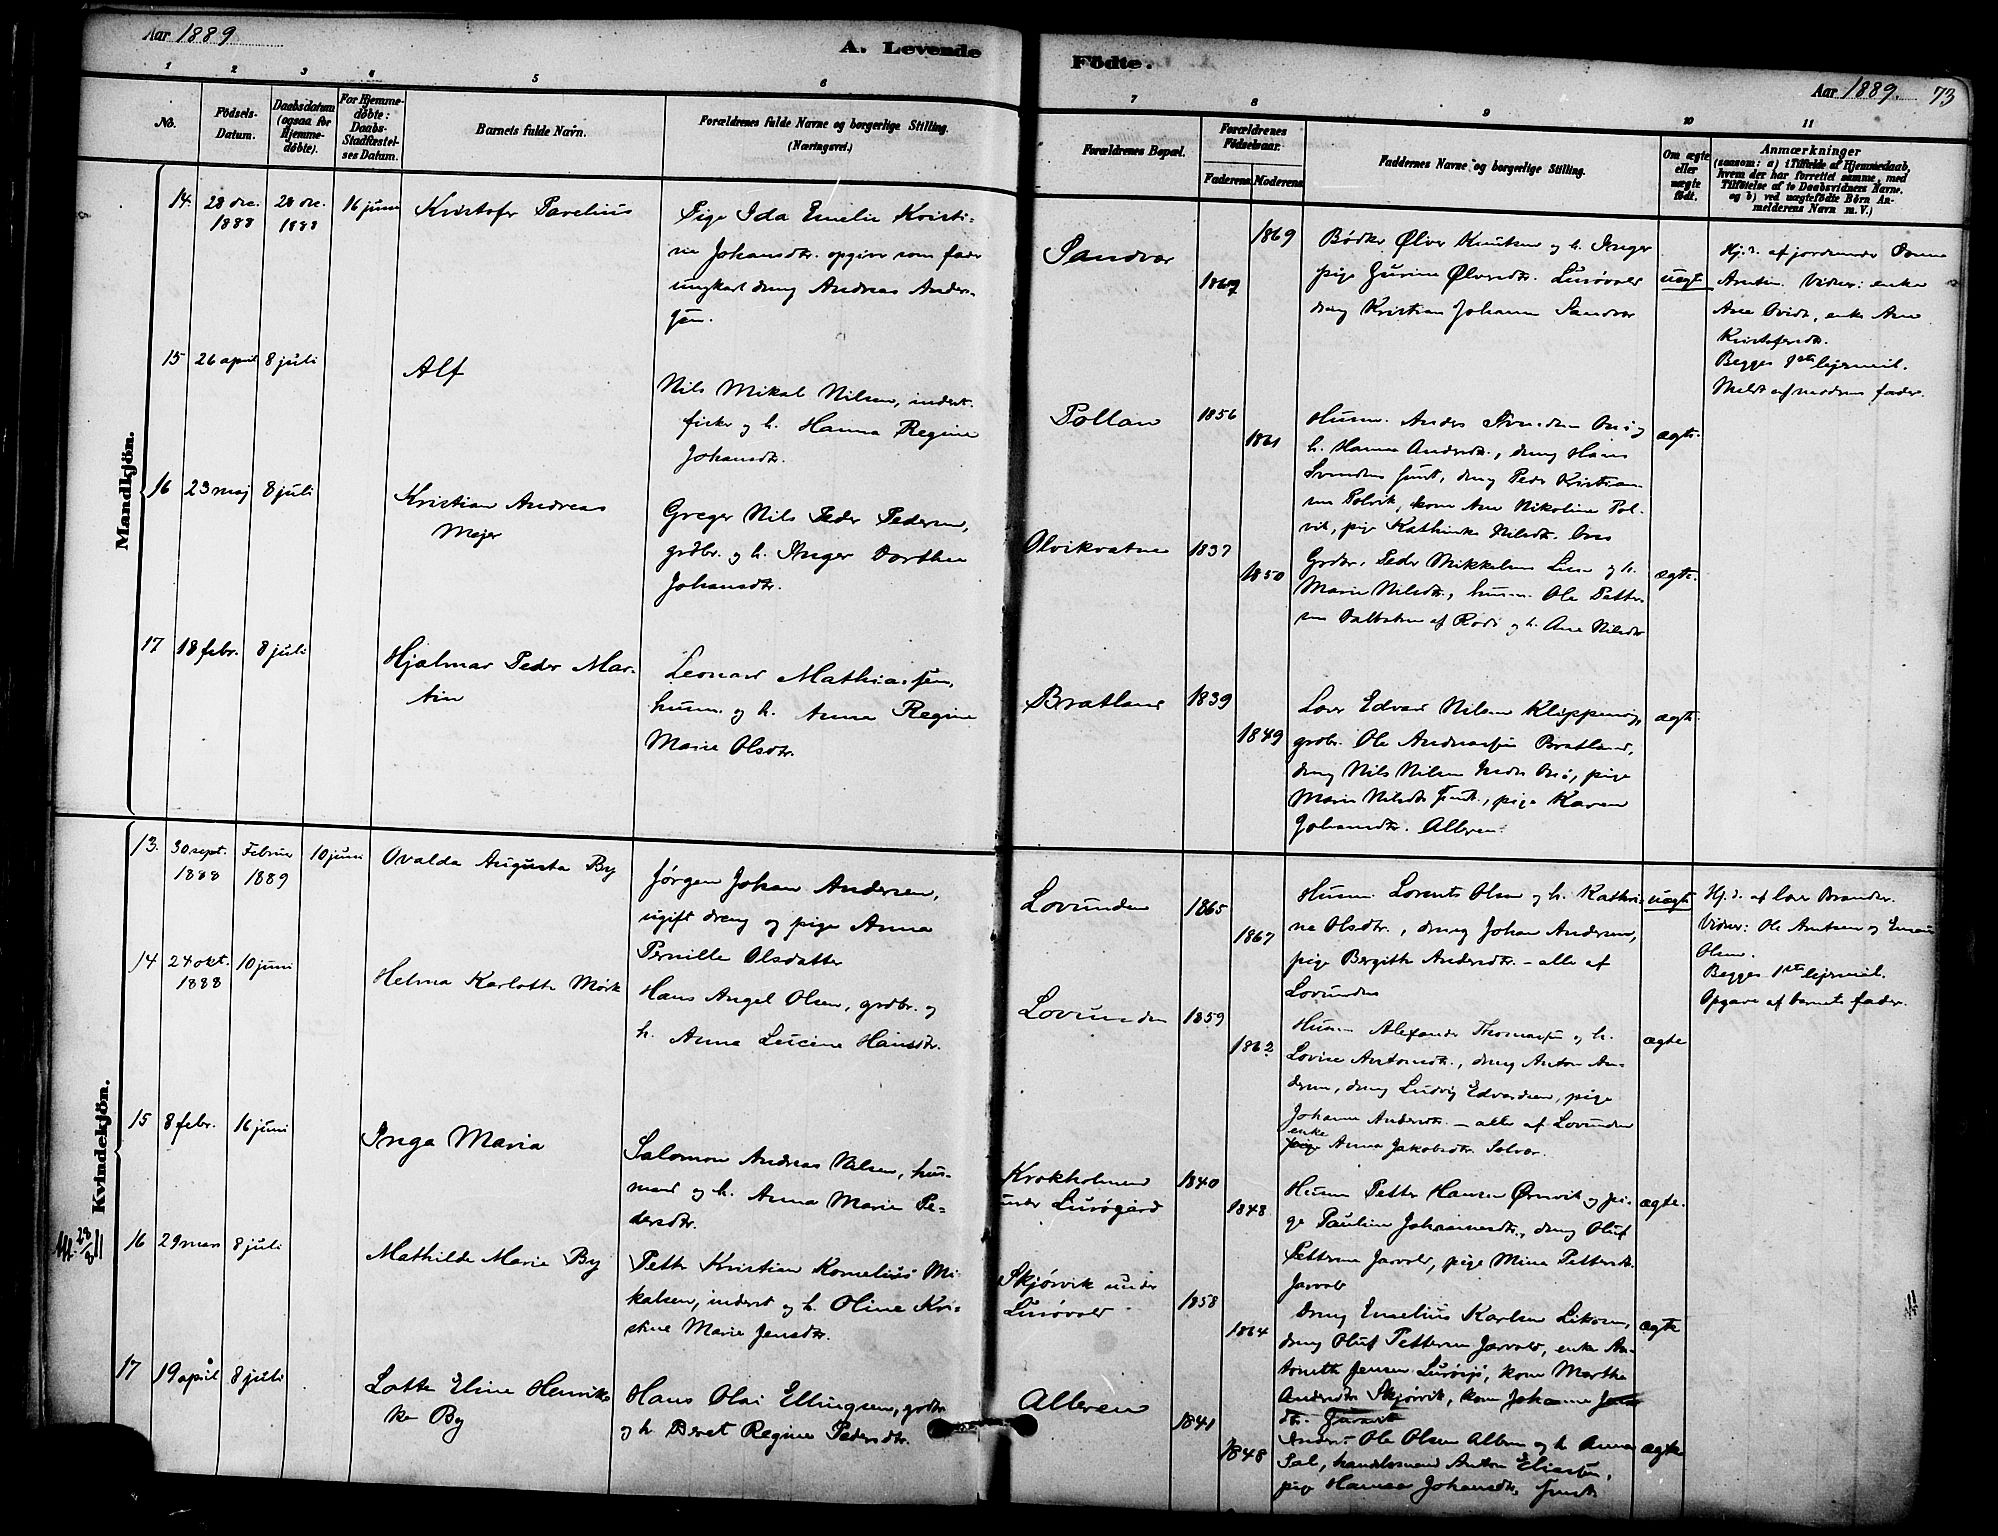 Aar 1889
A. Levende
Födte.
Aar 1889. 73
1 2 3 4 5 6
7 8 9 10 11
No.
Födsels-
Datum.
Daabsdatum
(ogsaa for
Hjemme-
døbte).
For Hjemme-
døbte:
Daabs-
Stadfæstel-
ses Datum.
Barnets fulde Navn.
Forældrenes fulde Navne og borgerlige Stilling.
(Næringsvei.)
Forældrenes Bopæl.
Forældrenes
Födselsaar.
Faderens. Moderens.
Faddernes Navne og borgerlige Stilling.
Om ægte
eller
uægte
født.
Anmærkninger
(saasom: a) i Tilfælde af Hjemmedaab,
hvem der har forrettet samme, med
Tilføielse af to Daabsvidners Navne.
og b) ved uægtefödte Börn An-
melderens Navn m. V.)
Mandkjön.
14. 28 dec. 1888
28 dec. 1888
16 juni
Kristofer Pavelius
Pige Ida Emelie Kristi-
ne Johansdtr. opgiver som fader
ungkarl dreng Andreas Ander-
sen.
Sandvær
1869
Bødker Ølver Knutsen og h. Inger
pige Gurine Ølversdtr. Lurøvold
dreng Kristian Johan Sandvær
uægt
Hj.d. af jordemoder
Arntsen. Vidner: enke
Ane
Kristofersdtr.
Begges 1ste lejermål.
Meldt af moderens fader.
15 26 april 8 juli
Alf
Nils Mikal Nilsen, inderst.
fisker og h. Hanna Regine
Johansdtr.
Pollan
1856
1861
Husm. Anders
h. Hanna Andersdtr., dreng Hans
dreng Peder Kristian-
sen Polvik, kone Ane Nikoline Pol-
vik, pige Kathinka Nilsdtr.
ægte.
16 23 maj 8 juli
Kristian Andreas
Mejer
Greger Nils Peder Pedersen,
grdbr. og h. Inger Dorthea
Johansdtr.
Olvikvatne
1837
1850
Grdbr. Peder Mikkelsen og h.
Marie Nilsdtr., husm. Ole Petter-
sen og h. Ane Nilsdtr
ægte.
17 18 febr. 8 juli
Hjalmar Peder Mar-
tin
Leonard Mathiassen,
husm. og h. Anna Regine
Marie Olsdtr.
Bratland
1839
1849
Lærer Edvard Nilsen
grdbr. Ole Andreassen Bratland,
dreng Nils Nilsen
Marie Nilsdtr pige Karen
Johansdtr. Alderen.
ægte.
Kvindekjön.
13. 30 sept. 1888
Februar 1889
10 juni
Ovalda Augusta By
Jørgen Johan Andersen,
ugift dreng og pige Anna
Pernille Olsdatter
Lovunden
1865
1867
Husm. Lorents Olsen og h. Kathri-
ne Olsdtr., dreng Johan Andersen,
pige Bergitte Andersdtr. – alle af
Lovunden
uægt
Hj.d. af lærer Brander.
Vidner: Ole Arntsen og
Olsen.
Begges 1ste lejermål.
Opgave af barnets fader.
14 24 okt. 1888
10 juni
Helma Karlotte Mørk
Hans Angel Olsen, grdbr. og
h. Anna Lucine Hansdtr.
Lovunden
1859
1862
Husm Alexander Thomassen og h.
Lovise Antonsdtr., dreng Anton An-
dersen, dreng Ludvig Edvardsen, pige
Johanna Andersdtr. – alle af Lovunden
enke
pige Anna Jakobsdtr. Selvær.
ægte
15 8 febr. 16 juni
Inga Maria
Salomon Andreas Nilsen, hus-
mand og h. Anna Marie Pe-
dersdtr.
Krokholmen
under Lurøgård
1840
1848
Husm Petter Hansen Ørnvik og pi-
ge Pauline Johannesdtr., dreng Oluf
Pettersen pige Mina Pettersdtr.
ægte.
16 29 mars 8 juli
Mathilde Marie By
Petter Kristian Kornelius Mi-
kalsen, inderst og h. Oline Kri-
stine Marie Jensdtr.
Skjørvik under
Lurøvold
1858
1864
Dreng Karlsen
dreng Oluf Pettersen enke An-
tonette Jensen kone Marthe
Andersdtr Skjørvik, kone Johanne
ægte
17 19 april 8 juli
Lotte Eline Henrik-
ke By
Hans Olai Ellingsen, grdbr
og h Beret Regine Pedersdtr.
Alderen
1841
1848
Ole Olsen og h Anna
Sal, handelsmand Anton Eliassen,
pige Hanna Johansdtr.
ægte